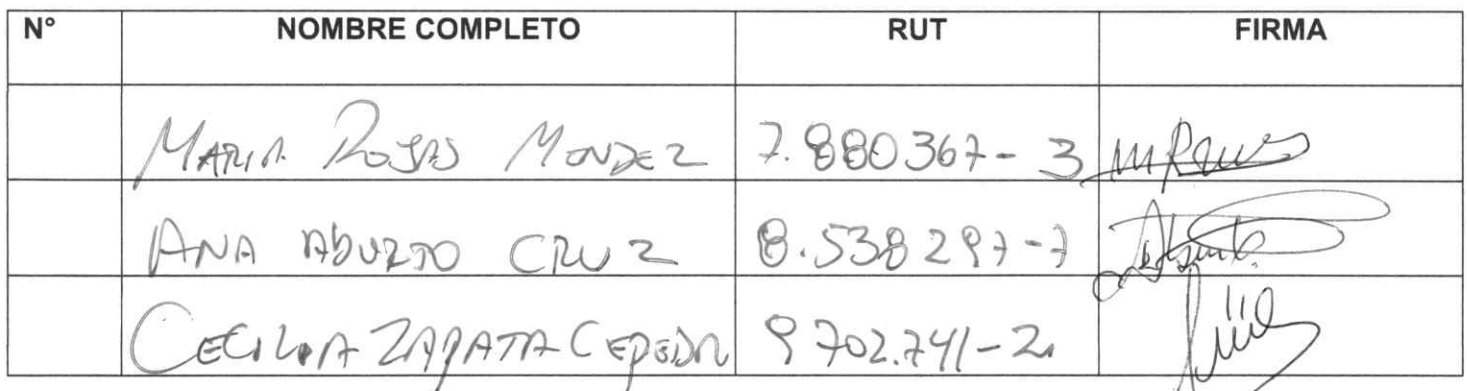 N° NOMBRE COMPLETO RUT FIRMA
MARIA ROJAS MONDEZ 7.880367-3
ANA ABURTO CRUZ 8.538297-7
CECILIA ZAPATA CEPEDA 9702.741-2